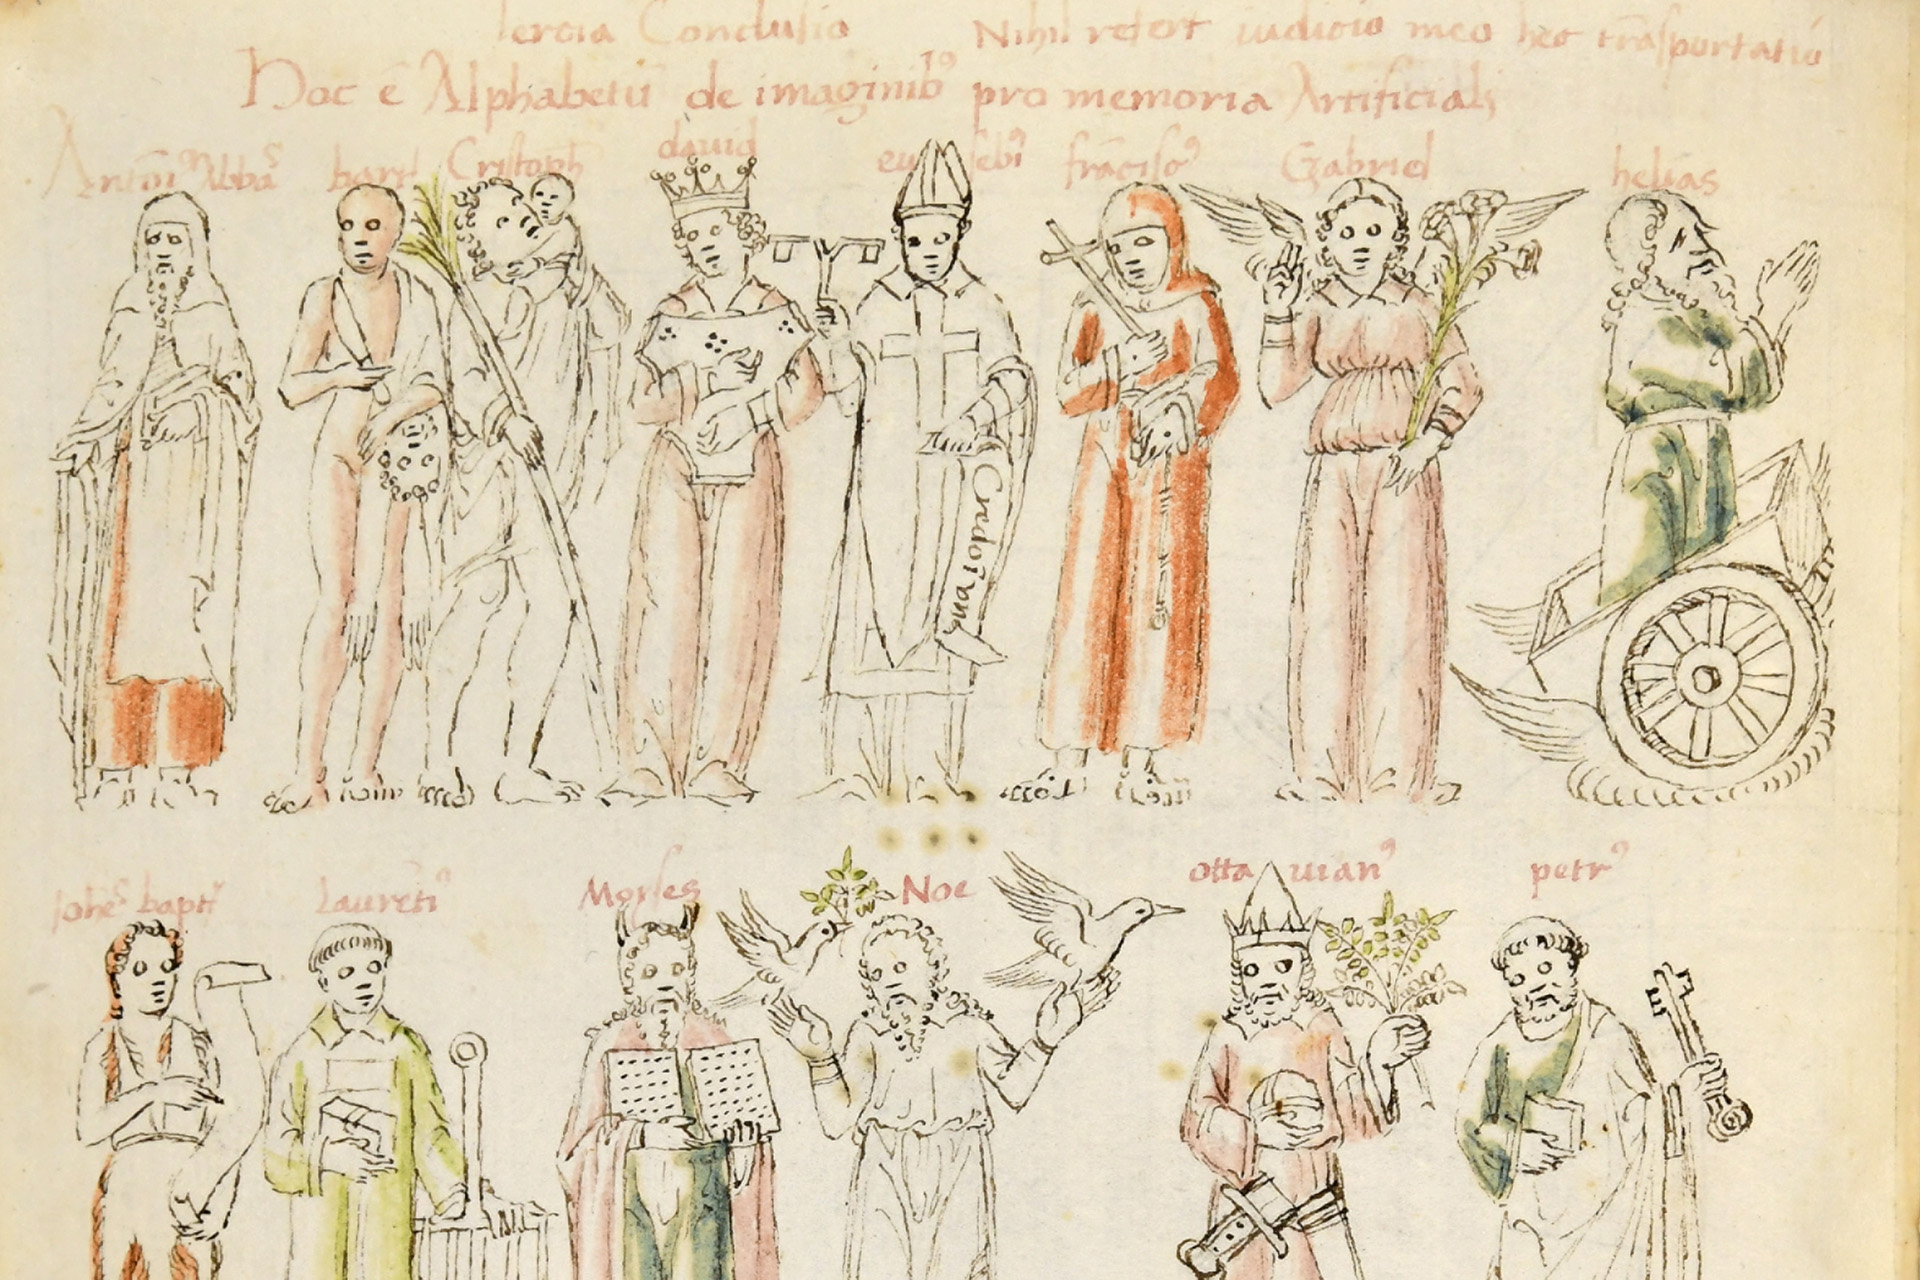 Tercia Conclusio Nihil refert iudicio meo hec trāsportatio
Hoc ē Alphabetū de imaginibꝰ pro memoria Artificiali
Antoniꝰ Abbas bartl Cristoph dauid eusebiꝰ frāciscꝰ Gabriel helias
Credo ī vnū
Iohēs baptī Laurētiꝰ Moyses Noe ottauianꝰ petrꝰ